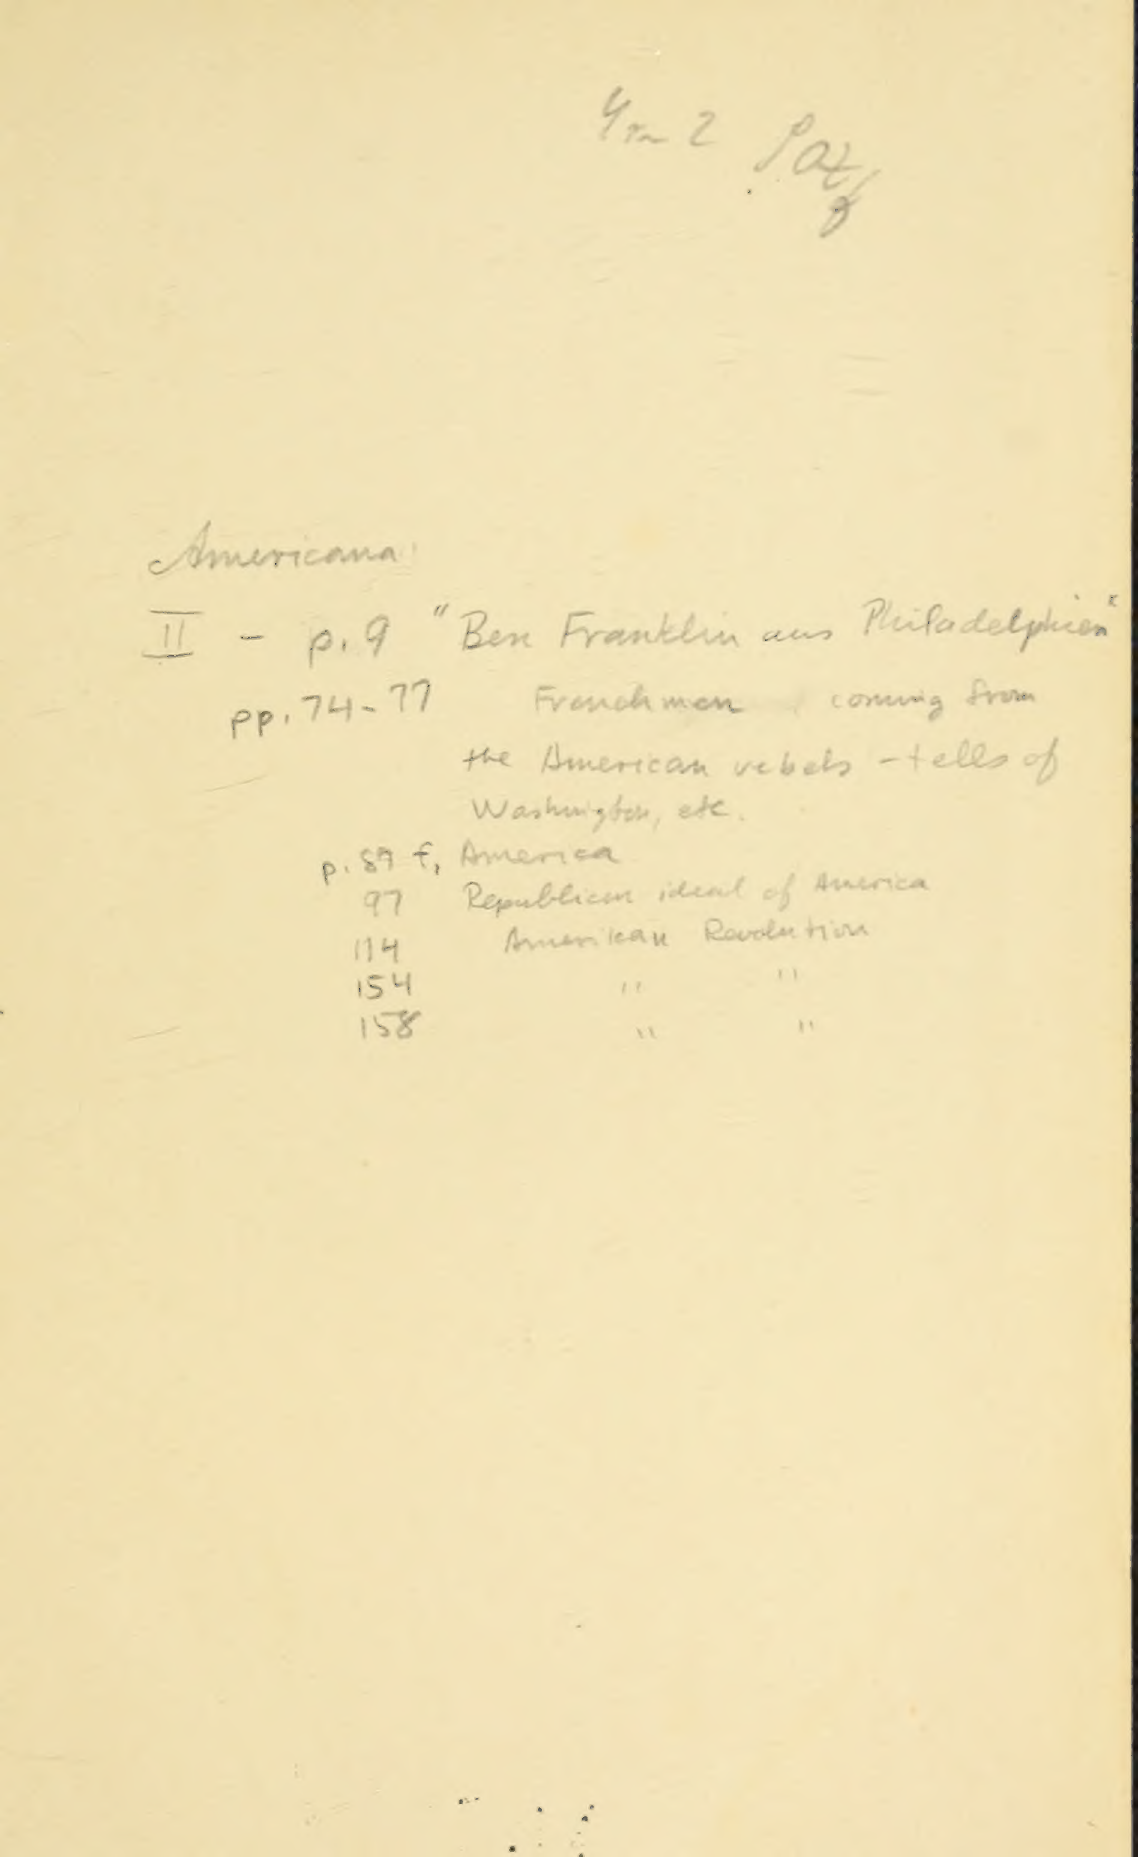 2
Americana:
II - p. 9 "Ben Franklin aus Philadelphien"
pp. 74-77 Frenchman coming from
the American rebels - tells of
Washington, etc.
p. 89 f, America
97 Republican ideal of America
114 Amerikan Revolution
154 " "
158 " "